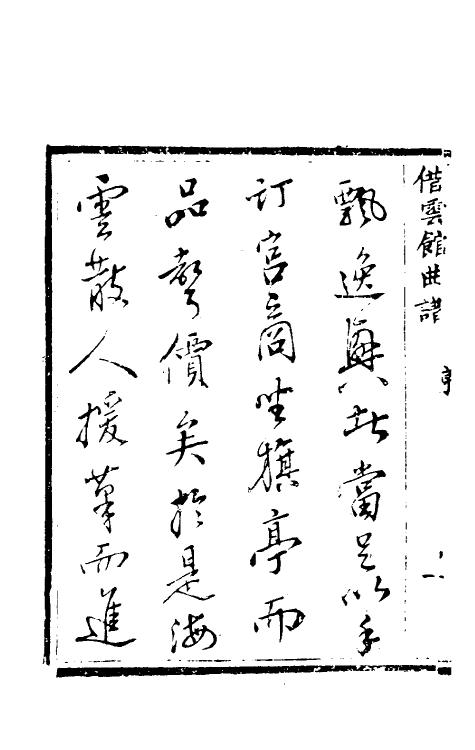 借雲館曲譜
序
一
飄逸與此當足以手
訂宮商坐旗亭而
品聲價矣於是海
雲散人援筆而進